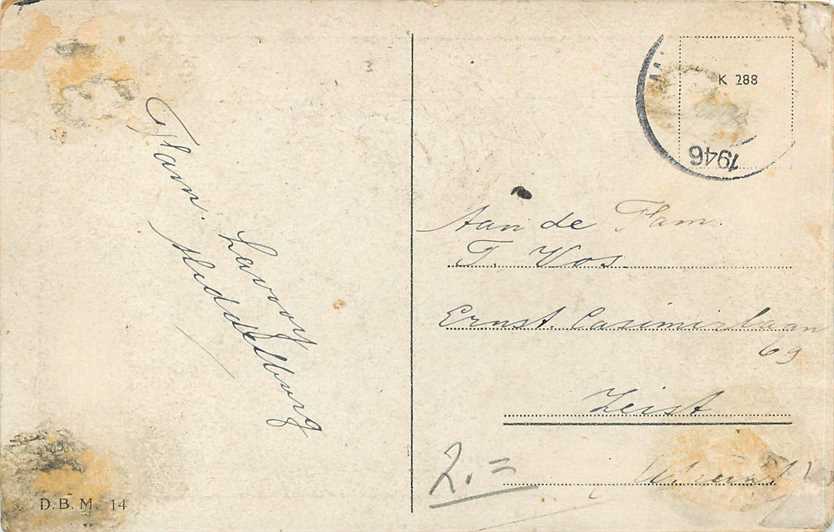 K 288
1946
Aan de Fam.
T. Vos
Ernst. Casimirlaan
69
Zeist
2.=
Fam.
Middelburg
D.B.M. 14